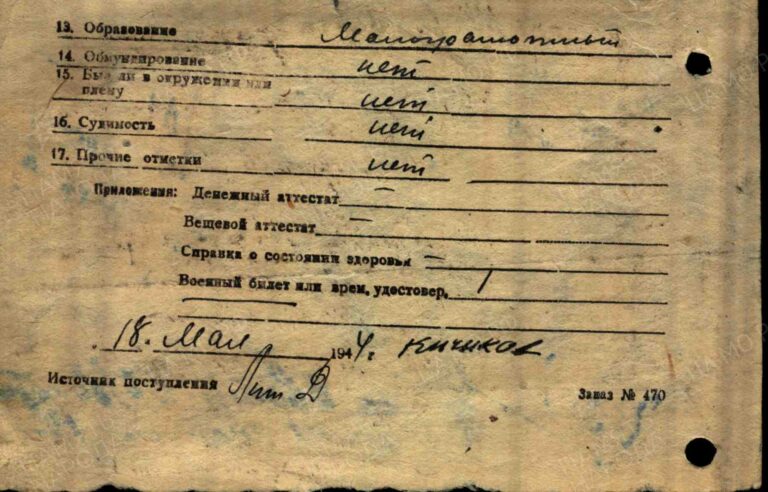 13. Образование Малограмотный
14. Обмундирование нет
15. Был ли в окружении или
плену нет
16. Судимость нет
17. Прочие отметки нет
Приложения: Денежный аттестат —
Вещевой аттестат —
Справка о состоянии здоровья —
Военный билет или врем. удостовер. 1
18. Мая 1944 г.
Источник поступления
Заказ № 470